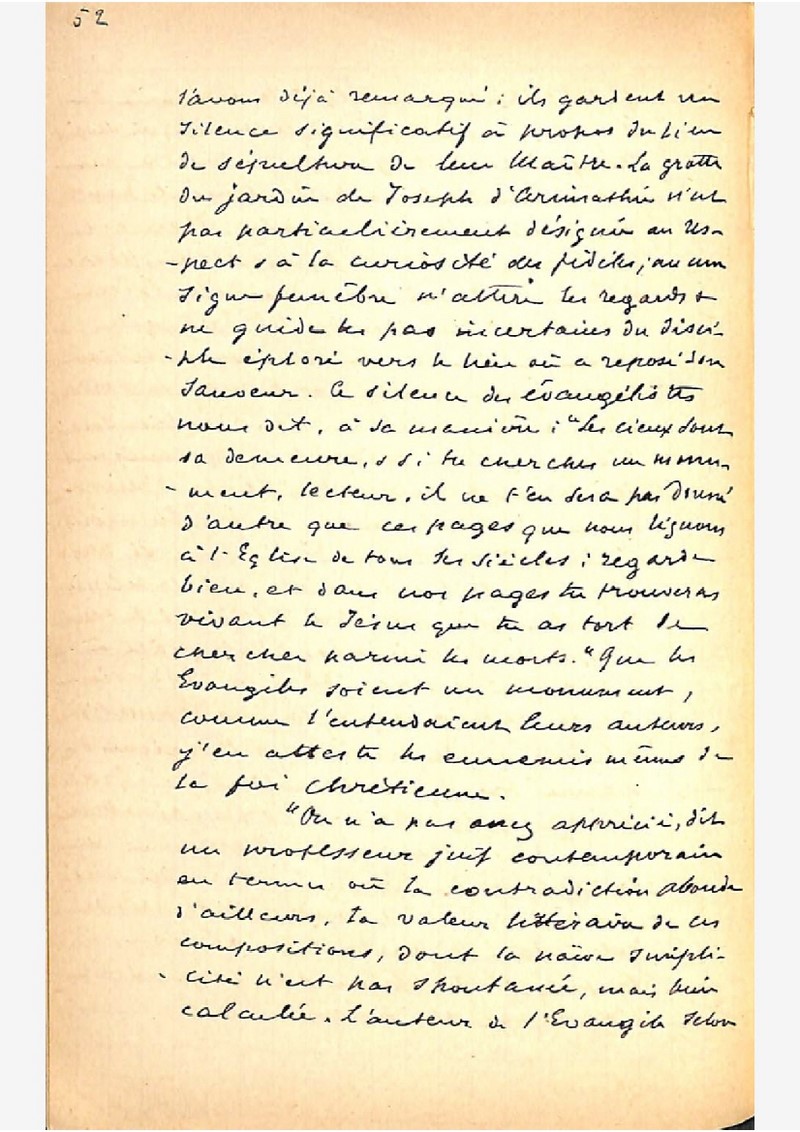 52
l'avons déjà remarqué : ils gardent un
silence significatif à propos du lieu
de sépulture de leur Maître. La grotte
du jardin de Joseph d'Arimathie n'est
pas particulièrement désignée au res-
-pect & à la curiosité des fidèles ; aucun
signe funèbre n'attire les regards &
ne guide les pas incertains du disci-
-ple éploré vers le lieu où a reposé son
Sauveur. Ce silence des évangélistes
nous dit, à sa manière : "Les cieux sont
sa demeure, & si tu cherches un monu-
-ment, lecteur, il ne t'en sera pas donné
d'autre que ces pages que nous léguons
à l'Eglise de tous les siècles ; regarde
bien, et dans nos pages tu trouveras
vivant le Jésus que tu as tort de
chercher parmi les morts." Que les
Evangiles soient un monument,
comme l'entendaient leurs auteurs,
j'en atteste les ennemis mêmes de
la foi chrétienne.
"On n'a pas assez apprécié, dit
un professeur juif contemporain
en termes où la contradiction abonde
d'ailleurs, la valeur littéraire de ces
compositions, dont la naïve simpli-
-cité n'est pas spontanée, mais bien
calculée. L'auteur de l'Evangile selon